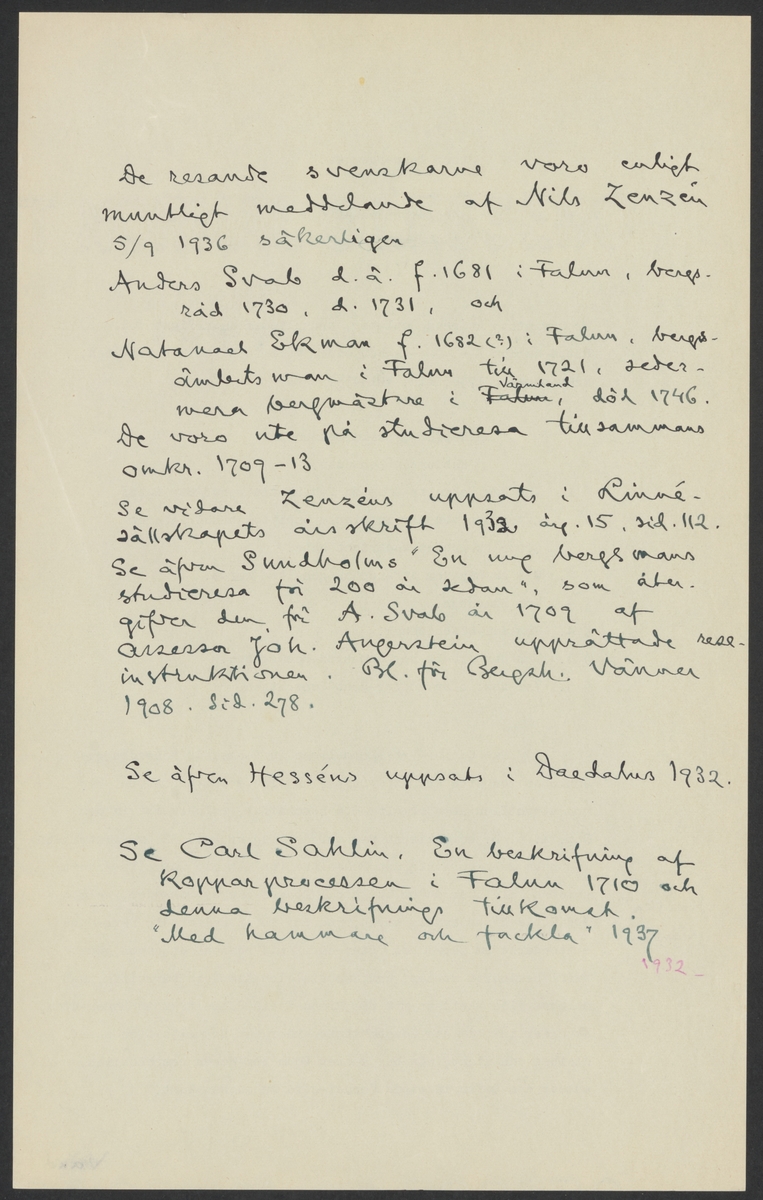 De resande svenskarne voro enligt
muntligt meddelande af Nils Zenzén
5/9 1936 säkerligen
Anders Svab d.ä. f. 1681 i Falun, bergs-
råd 1730, d. 1731, och
Natanael Ekman f. 1682(?) i Falun, bergs-
ämbetsman i Falun till 1721, seder-
Värmland
mera bergmästare i Falun, död 1746.
De voro ute på studieresa tillsammans
omkr. 1709-13
Se vidare Zenzéns uppsats i Linné-
sällskapets årsskrift 1932 årg. 15, sid. 112.
Se äfven Sundholms "En ung bergsmans
studieresa för 200 år sedan", som åter-
gifver den för A. Svab år 1709 af
assessor Joh. Angerstein upprättade rese-
instruktionen. Bl. för Bergsh. Vänner
1908. Sid. 278.
Se äfven Hesséns uppsats i Daedalus 1932.
Se Carl Sahlin. En beskrifning af
kopparprocessen i Falun 1710 och
denna beskrifnings tillkomst.
"Med hammare och fackla" 1937
1932_